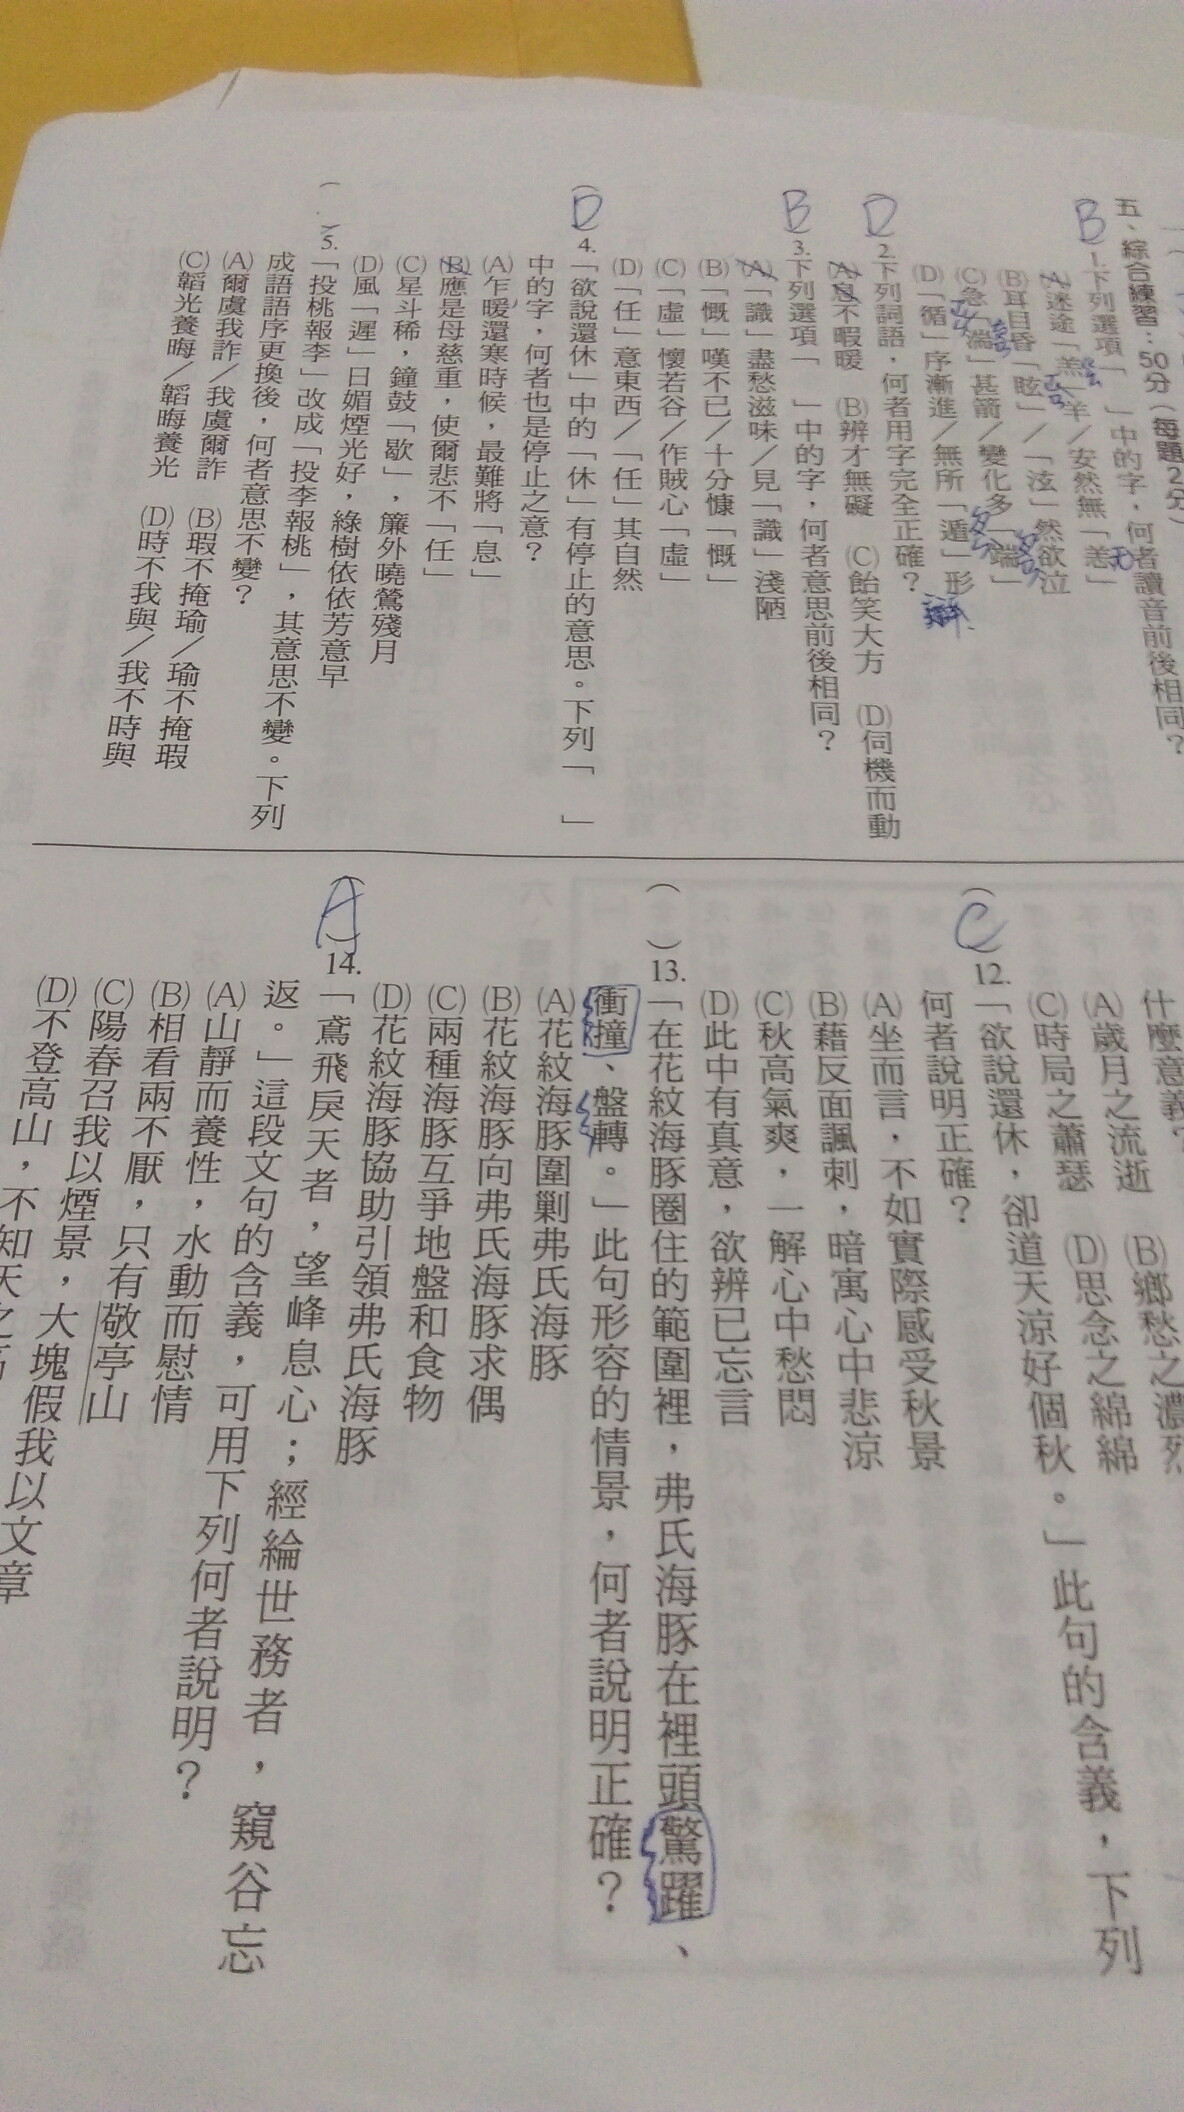 五、綜合練習：50分（每題2分）
B
1.下列選項「　」中的字，何者讀音前後相同？
(A)迷途「羔」羊／安然無「恙」
(B)耳目昏「眩」／「泫」然欲泣
(C)急「湍」甚箭／變化多「端」
(D)「循」序漸進／無所「遁」形
D
2.下列詞語，何者用字完全正確？
(A)息不暇暖　(B)辨才無礙　(C)飴笑大方　(D)伺機而動
B
3.下列選項「　」中的字，何者意思前後相同？
(A)「識」盡愁滋味／見「識」淺陋
(B)「慨」嘆不已／十分慷「慨」
(C)「虛」懷若谷／作賊心「虛」
(D)「任」意東西／「任」其自然
(D)
4.「欲說還休」中的「休」有停止的意思。下列「　」
中的字，何者也是停止之意？
(A)乍暖還寒時候，最難將「息」
(B)應是母慈重，使爾悲不「任」
(C)星斗稀，鐘鼓「歇」，簾外曉鶯殘月
(D)風「遲」日媚煙光好，綠樹依依芳意早
(　)5.「投桃報李」改成「投李報桃」，其意思不變。下列
成語語序更換後，何者意思不變？
(A)爾虞我詐／我虞爾詐　(B)瑕不掩瑜／瑜不掩瑕
(C)韜光養晦／韜晦養光　(D)時不我與／我不時與
什麼意義？
(A)歲月之流逝　(B)鄉愁之濃烈
(C)時局之蕭瑟　(D)思念之綿綿
(C)
12.「欲說還休，卻道天涼好個秋。」此句的含義，下列
何者說明正確？
(A)坐而言，不如實際感受秋景
(B)藉反面諷刺，暗寓心中悲涼
(C)秋高氣爽，一解心中愁悶
(D)此中有真意，欲辨已忘言
(　)13.「在花紋海豚圈住的範圍裡，弗氏海豚在裡頭驚躍、
衝撞、盤轉。」此句形容的情景，何者說明正確？
(A)花紋海豚圍剿弗氏海豚
(B)花紋海豚向弗氏海豚求偶
(C)兩種海豚互爭地盤和食物
(D)花紋海豚協助引領弗氏海豚
(A)
14.「鳶飛戾天者，望峰息心；經綸世務者，窺谷忘
返。」這段文句的含義，可用下列何者說明？
(A)山靜而養性，水動而慰情
(B)相看兩不厭，只有敬亭山
(C)陽春召我以煙景，大塊假我以文章
(D)不登高山，不知天之高